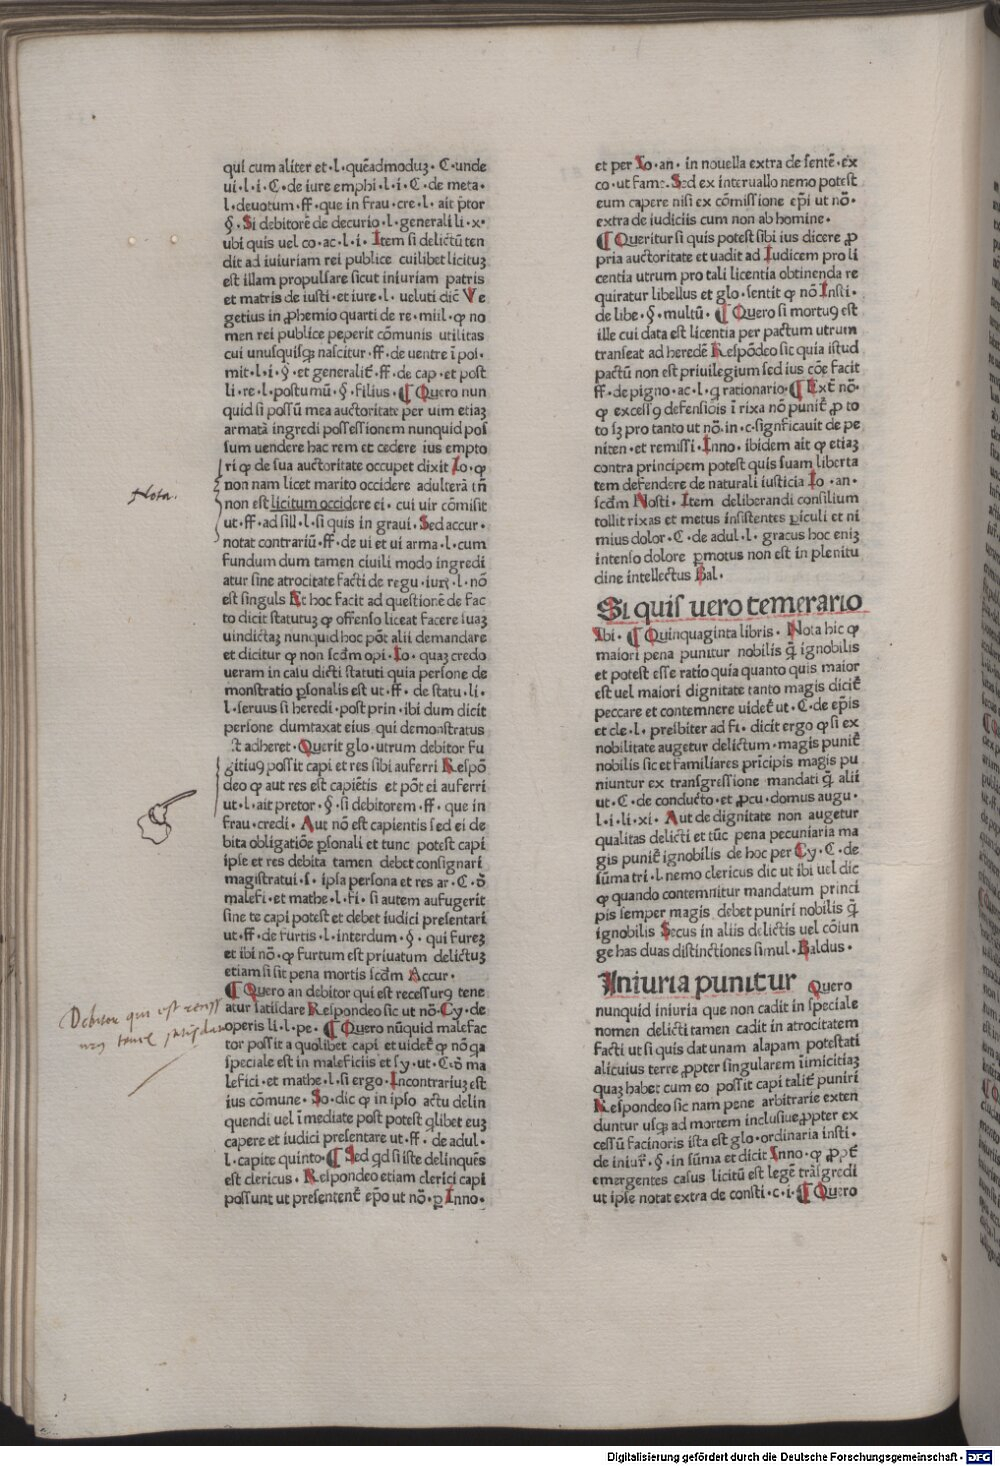 qui cum aliter et·l·quēadmoduʒ·C·unde
ui·l·i·C·de iure emphi·l·i·C·de meta·
l·deuotum·ff·que in frau·cre·l·ait p̄tor
§·Si debitorē de decurio·l·generali li·x·
ubi quis uel co·ac·l·i·Item si delictū ten
dit ad iuiuriam rei publice cuilibet licituʒ
est illam propulsare sicut iniuriam patris
et matris de iusti·et iure·l·ueluti dic̄ Ve
getius in ꝓhemio quarti de re·miil·ꝙ no
men rei publice peperit cōmunis utilitas
cui unusquisqʒ nascitur·ff·de uentre ī pos·
mit·l·i·§·et generalit̄·ff·de cap·et post
li·re·l·postumū·§·filius·¶ Quero nun
quid si possū mea auctoritate per uim etiaʒ
armatā ingredi possessionem nunquid pos
sum uendere hac rem et cedere ius empto
ri ꝙ de sua auctoritate occupet dixit Io·ꝙ
non nam licet marito occidere adulterā tn̄
non est licitum occidere ei·cui uir cōmisit
ut·ff·ad sill·l·si quis in graui·Sed accur·
notat contrariū·ff·de ui et ui arma·l·cum
fundum dum tamen ciuili modo ingredi
atur sine atrocitate facti de regu·iur̄·l·nō
est singuls Et hoc facit ad questionē de fac
to dicit statutuʒ ꝙ offenso liceat facere suaʒ
uindictaʒ nunquid hoc pōt alii demandare
et dicitur ꝙ non scd̄m opi·Io·quaʒ credo
ueram in casu dicti statuti quia persone de
monstratio ꝑsonalis est ut·ff·de statu·li·
l·seruus si heredi·post prin·ibi dum dicit
persone dumtaxat eius qui demonstratus
st adheret·Querit glo·utrum debitor fu
gitiuꝰ possit capi et res sibi auferri Respō
deo ꝙ aut res est capiētis et pōt ei auferri
ut·l·ait pretor·§·si debitorem·ff·que in
frau·credi·Aut nō est capientis sed ei de
bita obligatiōe ꝑsonali et tunc potest capi
ipse et res debita tamen debet consignari
magistratui·s·ipsa persona et res ar·C·d̄
malefi·et mathe·l·fi·si autem aufugerit
sine te capi potest et debet iudici presentari
ut·ff·de furtis·l·interdum·§·qui fureʒ
et ibi nō·ꝙ furtum est priuatum delictuʒ
etiam si sit pena mortis scd̄m Accur·
¶ Quero an debitor qui est recessurꝰ tene
atur satisdare Respondeo sic ut nō·Cy·de
operis li·l·pe·¶ Quero nūquid malefac
tor possit a quolibet capi et uidet̄ ꝙ nō qa
speciale est in maleficiis et sy·ut·C·d̄ ma
lefici·et mathe·l·si ergo·Incontrariuʒ est
ius cōmune·So·dic ꝙ in ipso actu delin
quendi uel īmediate post potest qlibet euʒ
capere et iudici presentare ut·ff·de adul·
l·capite quinto·¶ Sed qd si iste delinquēs
est clericus·Respondeo etiam clerici capi
possunt ut presentent̄ epō ut nō·ꝑ Inno·
Nota.
et per Io·an·in nouella extra de sentē·ex
co·ut fame·Sed ex interuallo nemo potest
eum capere nisi ex cōmissione epī ut nō·
extra de iudiciis cum non ab homine·
¶ Queritur si quis potest sibi ius dicere ꝓ
pria auctoritate et uadit ad Iudicem pro li
centia utrum pro tali licentia obtinenda re
quiratur libellus et glo·sentit ꝙ nō Insti·
de libe·§·multū·¶ Quero si mortuꝰ est
ille cui data est licentia per pactum utrum
transeat ad heredē Respōdeo sic quia istud
pactū non est priuilegium sed ius cōe facit
ff·de pigno·ac·l·q rationario·¶ Ext̄ nō·
ꝙ excessꝰ defensiōis ī rixa nō punit̄ ꝓ to
to sʒ pro tanto ut nō·in·c·signficauit de pe
niten·et remissi·Inno·ibidem ait ꝙ etiaʒ
contra principem potest quis suam liberta
tem defendere de naturali iusticia Io·an·
scd̄m Hosti·Item deliberandi consilium
tollit rixas et metus insistentes ꝑiculi et ni
mius dolor·C·de adul·l·gracus hoc eniʒ
intenso dolore ꝑmotus non est in plenitu
dine intellectus Bal·
Si quis uero temerario
Ibi·¶ Quinquaginta libris·Nota hic ꝙ
maiori pena punitur nobilis q̄ ignobilis
et potest esse ratio quia quanto quis maior
est uel maiori dignitate tanto magis dicit̄
peccare et contemnere uidet̄ ut·C·de ep̄is
et cle·l·presbiter ad fi·dicit ergo ꝙ si ex
nobilitate augetur delictum·magis punit̄
nobilis sic et familiares prīcipis magis pu
niuntur ex transgressione mandati q̄ alii
ut·C·de conducto·et ꝓcu·domus augu·
l·i·li·xi·Aut de dignitate non augetur
qualitas delicti et tūc pena pecuniaria ma
gis punit̄ ignobilis de hoc per Cy·C·de
sūma tri·l·nemo clericus dic ut ibi uel dic
ꝙ quando contemnitur mandatum princi
pis semper magis debet puniri nobilis q̄
ignobilis Secus in aliis delictis uel cōiun
ge has duas distinctiones simul·Baldus·
Iniuria punitur Quero
nunquid iniuria que non cadit in speciale
nomen delicti tamen cadit in atrocitatem
facti ut si quis dat unam alapam potestati
alicuius terre ꝓpter singularem īimicitiaʒ
quaʒ habet cum eo possit capi talit̄ puniri
Respondeo sic nam pene arbitrarie exten
duntur usqʒ ad mortem inclusiue ꝓpter ex
cessū facinoris ista est glo·ordinaria insti·
de iniur̄·§·in sūma et dicit Inno·ꝙ ꝓpt̄
emergentes casus licitū est legē trāsgredi
ut ipse notat extra de consti·c·i·¶ Quero
Digitalisierung gefördert durch die Deutsche Forschungsgemeinschaft · DFG